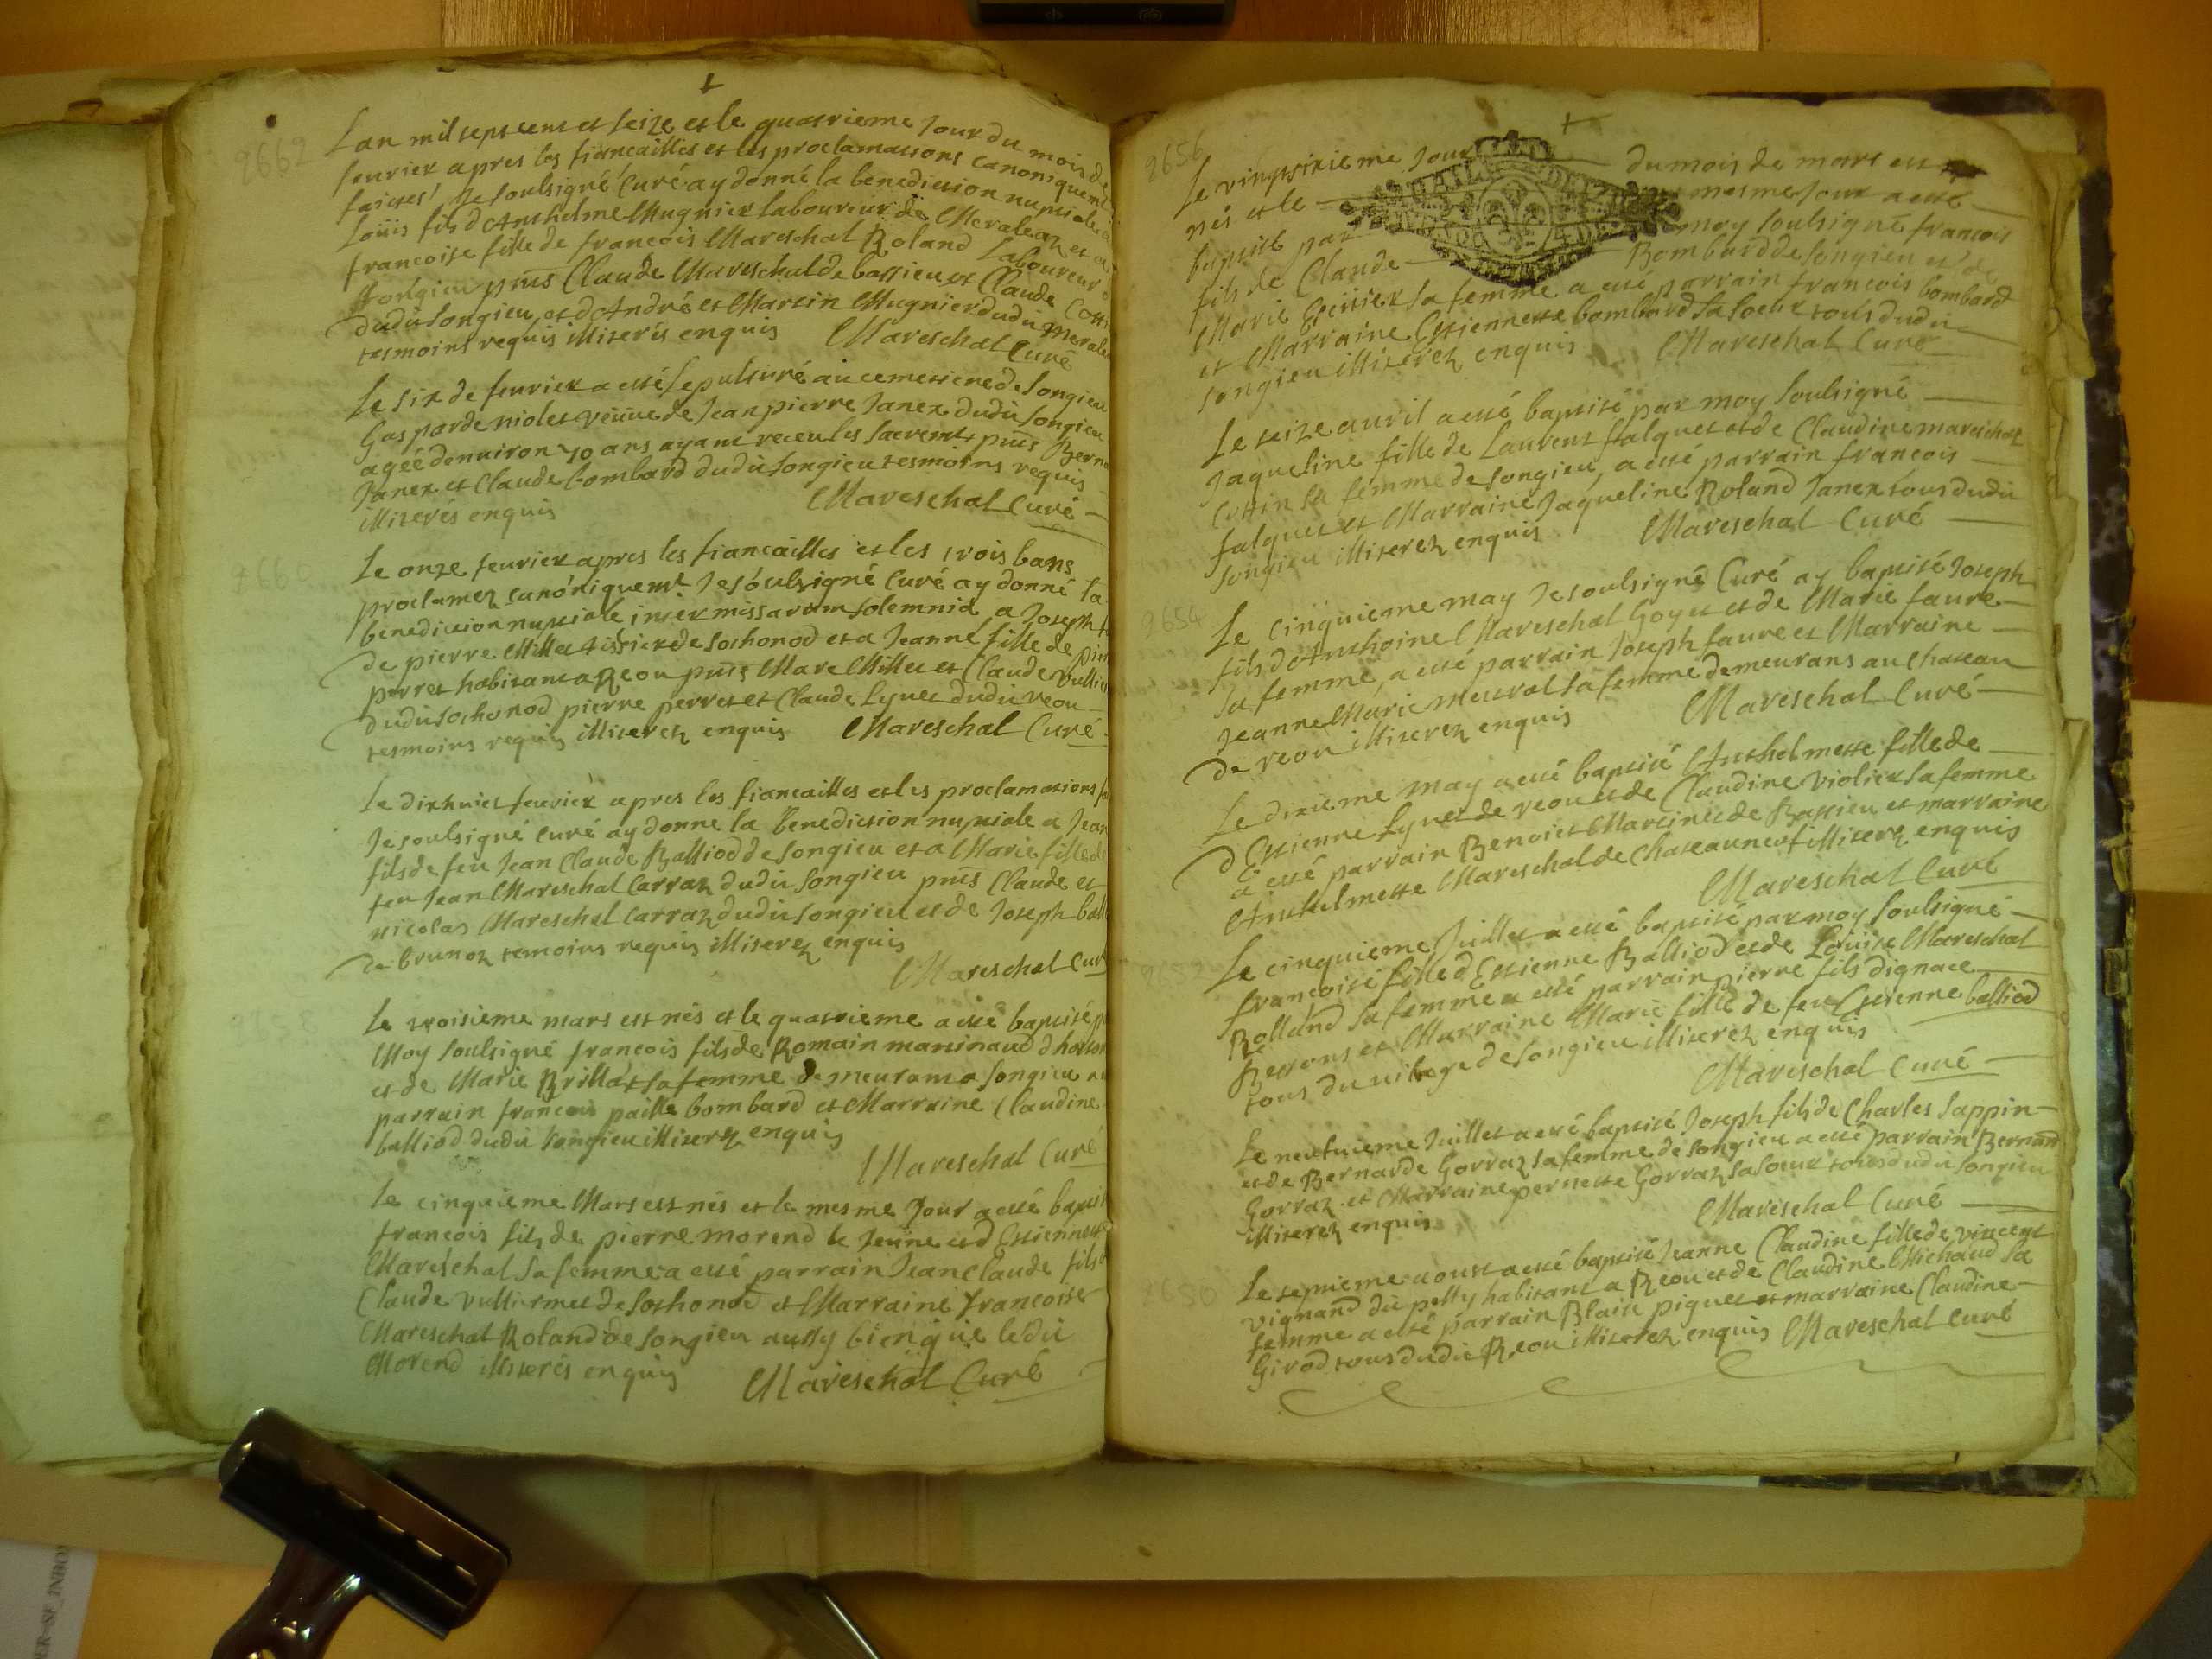 2662
Lan mil sept cent et seize et le quatrieme Jour du mois de
feurier apres les fiancailles et les proclamations canoniquemt
faittes Je soulsigné Curé ay donné la benediction nuptiale a
Loüis fils dAnthelme Mugnier laboureur de Meraleaz et a
francoise fille de francois Mareschal Roland Laboureur
Songieu pnts Claude Mareschal de bassieu et Claude Cottin
dudit Songieu et dAndré et Martin Mugnier dudit
tesmoins requis illiterés enquis Mareschal Curé
Le six de feurier a esté sepulturé au cemetiere de Songieu
Gasparde niolet veuue de Jean pierre Janex dudit Songieu
agéé denuiron 70 ans ayant receu les sacremts pnts
Janex et Claude bombard dudit Songieu tesmoins requis
illiterés enquis Mareschal Curé
Le onze feurier apres les fiancailles et les trois bans
proclamez canóniquemt Je sóulsigné Curé ay donné la
benediction nuptiale inter missarum solemnia a Joseph
de pierre Millet tissier de Sothonod et a Jeanne fille de
perret habitant a Reou pnts Marc Millet et Claude
dudit Sothonod pierre perret et Claude Lynet dudit reou
tesmoins requis illiterez enquis Mareschal Curé
Le dixhuict feurier apres les fiancailles et les proclamations
Je soulsigné Curé ay donne la benediction nuptiale a Jean
fils de feu Jean Claude Balliod de Songieu et a Marie fille de
feu Jean Mareschal Carraz dudit Songieu pnts Claude et
nicolas Mareschal Carraz dudit Songieu et de Joseph
de brunoz temoins requis illiterez enquis
Mareschal Curé
Le troisieme mars est nés et le quatrieme a esté baptisé
Moy soulsigné francois fils de Romain martinaud
et de Marie Brillat sa femme demeurant a Songieu
parrain francois paille bombard et Marraine Claudine
balliod dudit Songieu illiterez enquis
Mareschal Curé
Le cinquieme Mars est nés et le mesme Jour a esté
francois fils de pierre morend le Jeune et d Estiennette
Mareschal sa femme a esté parrain Jean Claude fils
Claude vulliermet de Sothonod et Marraine francoise
Mareschal Roland de Songieu aussy bien que ledit
Morend illiterés enquis Mareschal Curé
2656
Le vingtsixieme Jour du mois de mars est
nés et le mesme Jour a esté
baptisé par moy soulsigné francois
fils de Claude Bombard de Songieu et de
Marie sa femme a esté parrain francois bombard
et Marraine Estiennette bombard sa soeur tous dudit
Songieu illiterez enquis Mareschal Curé
Le seize auril a esté baptisé par moy soulsigné
Jaqueline fille de Laurent falquet et de Claudine mareschal
Cottin sa femme de Songieu, a esté parrain francois
falquet et Marraine Jaqueline Roland Janex tous dudit
Songieu illiterez enquis Mareschal Curé
2654
Le cinquieme may Je soulsigné Curé ay baptisé Joseph
fils dAnthoine Mareschal Goyet et de Marie faure
sa femme, a esté parrain Joseph faure et Marraine
Jeanne Marie sa femme demeurans au Chateau
de reou illiterez enquis Mareschal Curé
Le dixieme may a esté baptisé Anthelmette fille de
d Estienne Lynet de reou et de Claudine violier sa femme
a esté parrain Benoict Martinet de Bassieu et marraine
Anthelmette Mareschal de Chateauneuf illiterez enquis
Mareschal Curé
Le cinquieme Juillet a esté baptisé par moy soulsigné
françoise fille d Estienne Balliod et de Louise Mareschal
Rolland sa femme a esté parrain pierre fils dignace
et Marraine Marie fille de feu Estienne balliod
tous du uilage de Songieu illiterez enquis
Mareschal Curé
Le neufuieme Juillet a esté baptisé Joseph fils de Charles Sappin
et de Bernarde Gorraz sa femme de Songieu a esté parrain Bernard
Gorraz et Marraine pernette Gorraz sa soeur tous dudit Songieu
illiterez enquis Mareschal Curé
2650
Le septieme aoust a esté baptisé Jeanne Claudine fille de vincent
vignand du petty habitant a Reou et de Claudine Michaud sa
femme a esté parrain Blaise piquet et marraine Claudine
Girod tous dudit Reou illiterez enquis Mareschal Curé